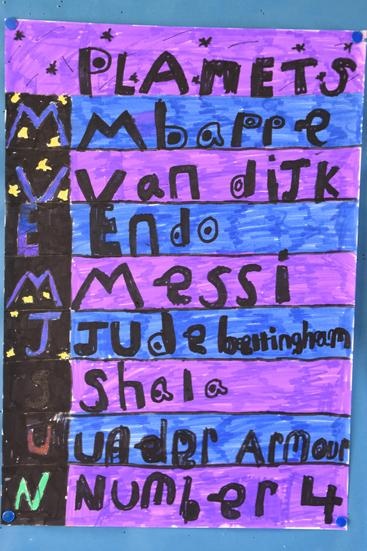 PLANETS
M Mbappe
V Van dijk
E Endo
M Messi
J JUde bellingham
S Shala
U UNder ArmOur
N NUmber 4